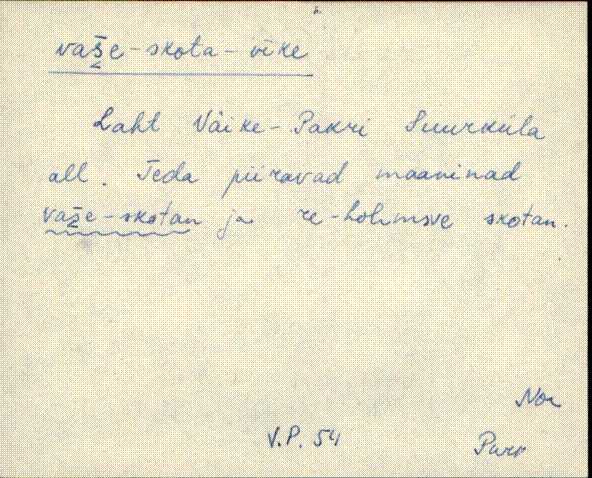 vaše-skota-vike
Laht Väike-Pakri Suurküla
all. Teda piiravad maaninad
vaše-skotan ja re-holmsve skotan.
Noa
V.P. 54
Purr